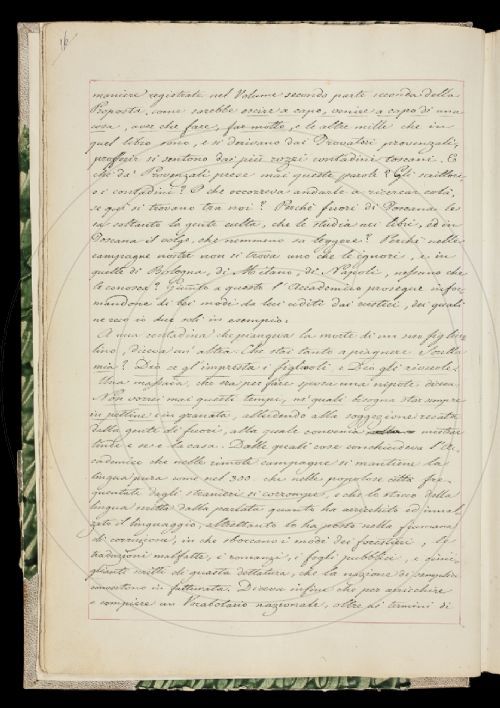 maniere registrate nel Volume secondo parte seconda della
Proposta, come sarebbe uscir a capo, venire a capo di una
cosa, aver che fare, far motto, e le altre mille che in
quel libro sono, e si dicevano dai Trovatori provenzali,
si sentono dai più rozzi contadini toscani. E
chi da' Provenzali prese mai queste parole? Gli scrittori,
o i contadini? E che occorreva andarle a ricercar colà,
se qui si trovano tra noi? Perché fuori di Toscana le
sa soltanto la gente culta, che le studia nei libri, ed in
Toscana il volgo, che nemmeno sa leggere? Perché nelle
campagne nostre non si trova uno che le ignori, e in
quelle di Bologna, di Milano, di Napoli, nessuno che
le conosca? Giunto a questo l'Accademico prosegue infor-
mandone di bei modi da lui uditi dai rustici, dei quali
ne reco io due soli in esempio.
A una contadina che piangeva la morte di un suo figliuo-
lino, diceva un'altra. Che stai tanto a piagnere Sorella
mia? Dio ce gl'impresta i figliuoli e Dio gli rivuole.
Una massaia, che era per fare sposa una nipote diceva
Non vorrei mai questi tempi, ne' quali bisogna star sempre
in pettine e in granata, alludendo alla soggezione recata
dalla gente di fuori, alla quale conveniva mostrar
linde e se e la casa. Dalle quali cose conchiudeva l'Ac-
cademico che nelle rimote campagne si mantiene la
lingua pura come nel 300. che nelle popolose città fre-
quentate dagli stranieri si corrompe, e che lo studio della
lingua scritta dalla parlata quanto ha arricchito ed innal-
zato il linguaggio, altrettanto lo ha posto nella fiumana
di corruzione, in che sboccano i modi dei forestieri, le
traduzioni malfatte, i romanzi, i fogli pubblici, e simi-
glianti scritti di guasta dettatura, che la nazione
convertono in fatturata. Diceva infine che per arricchire
e compiere un Vocabolario nazionale, oltre ai termini di